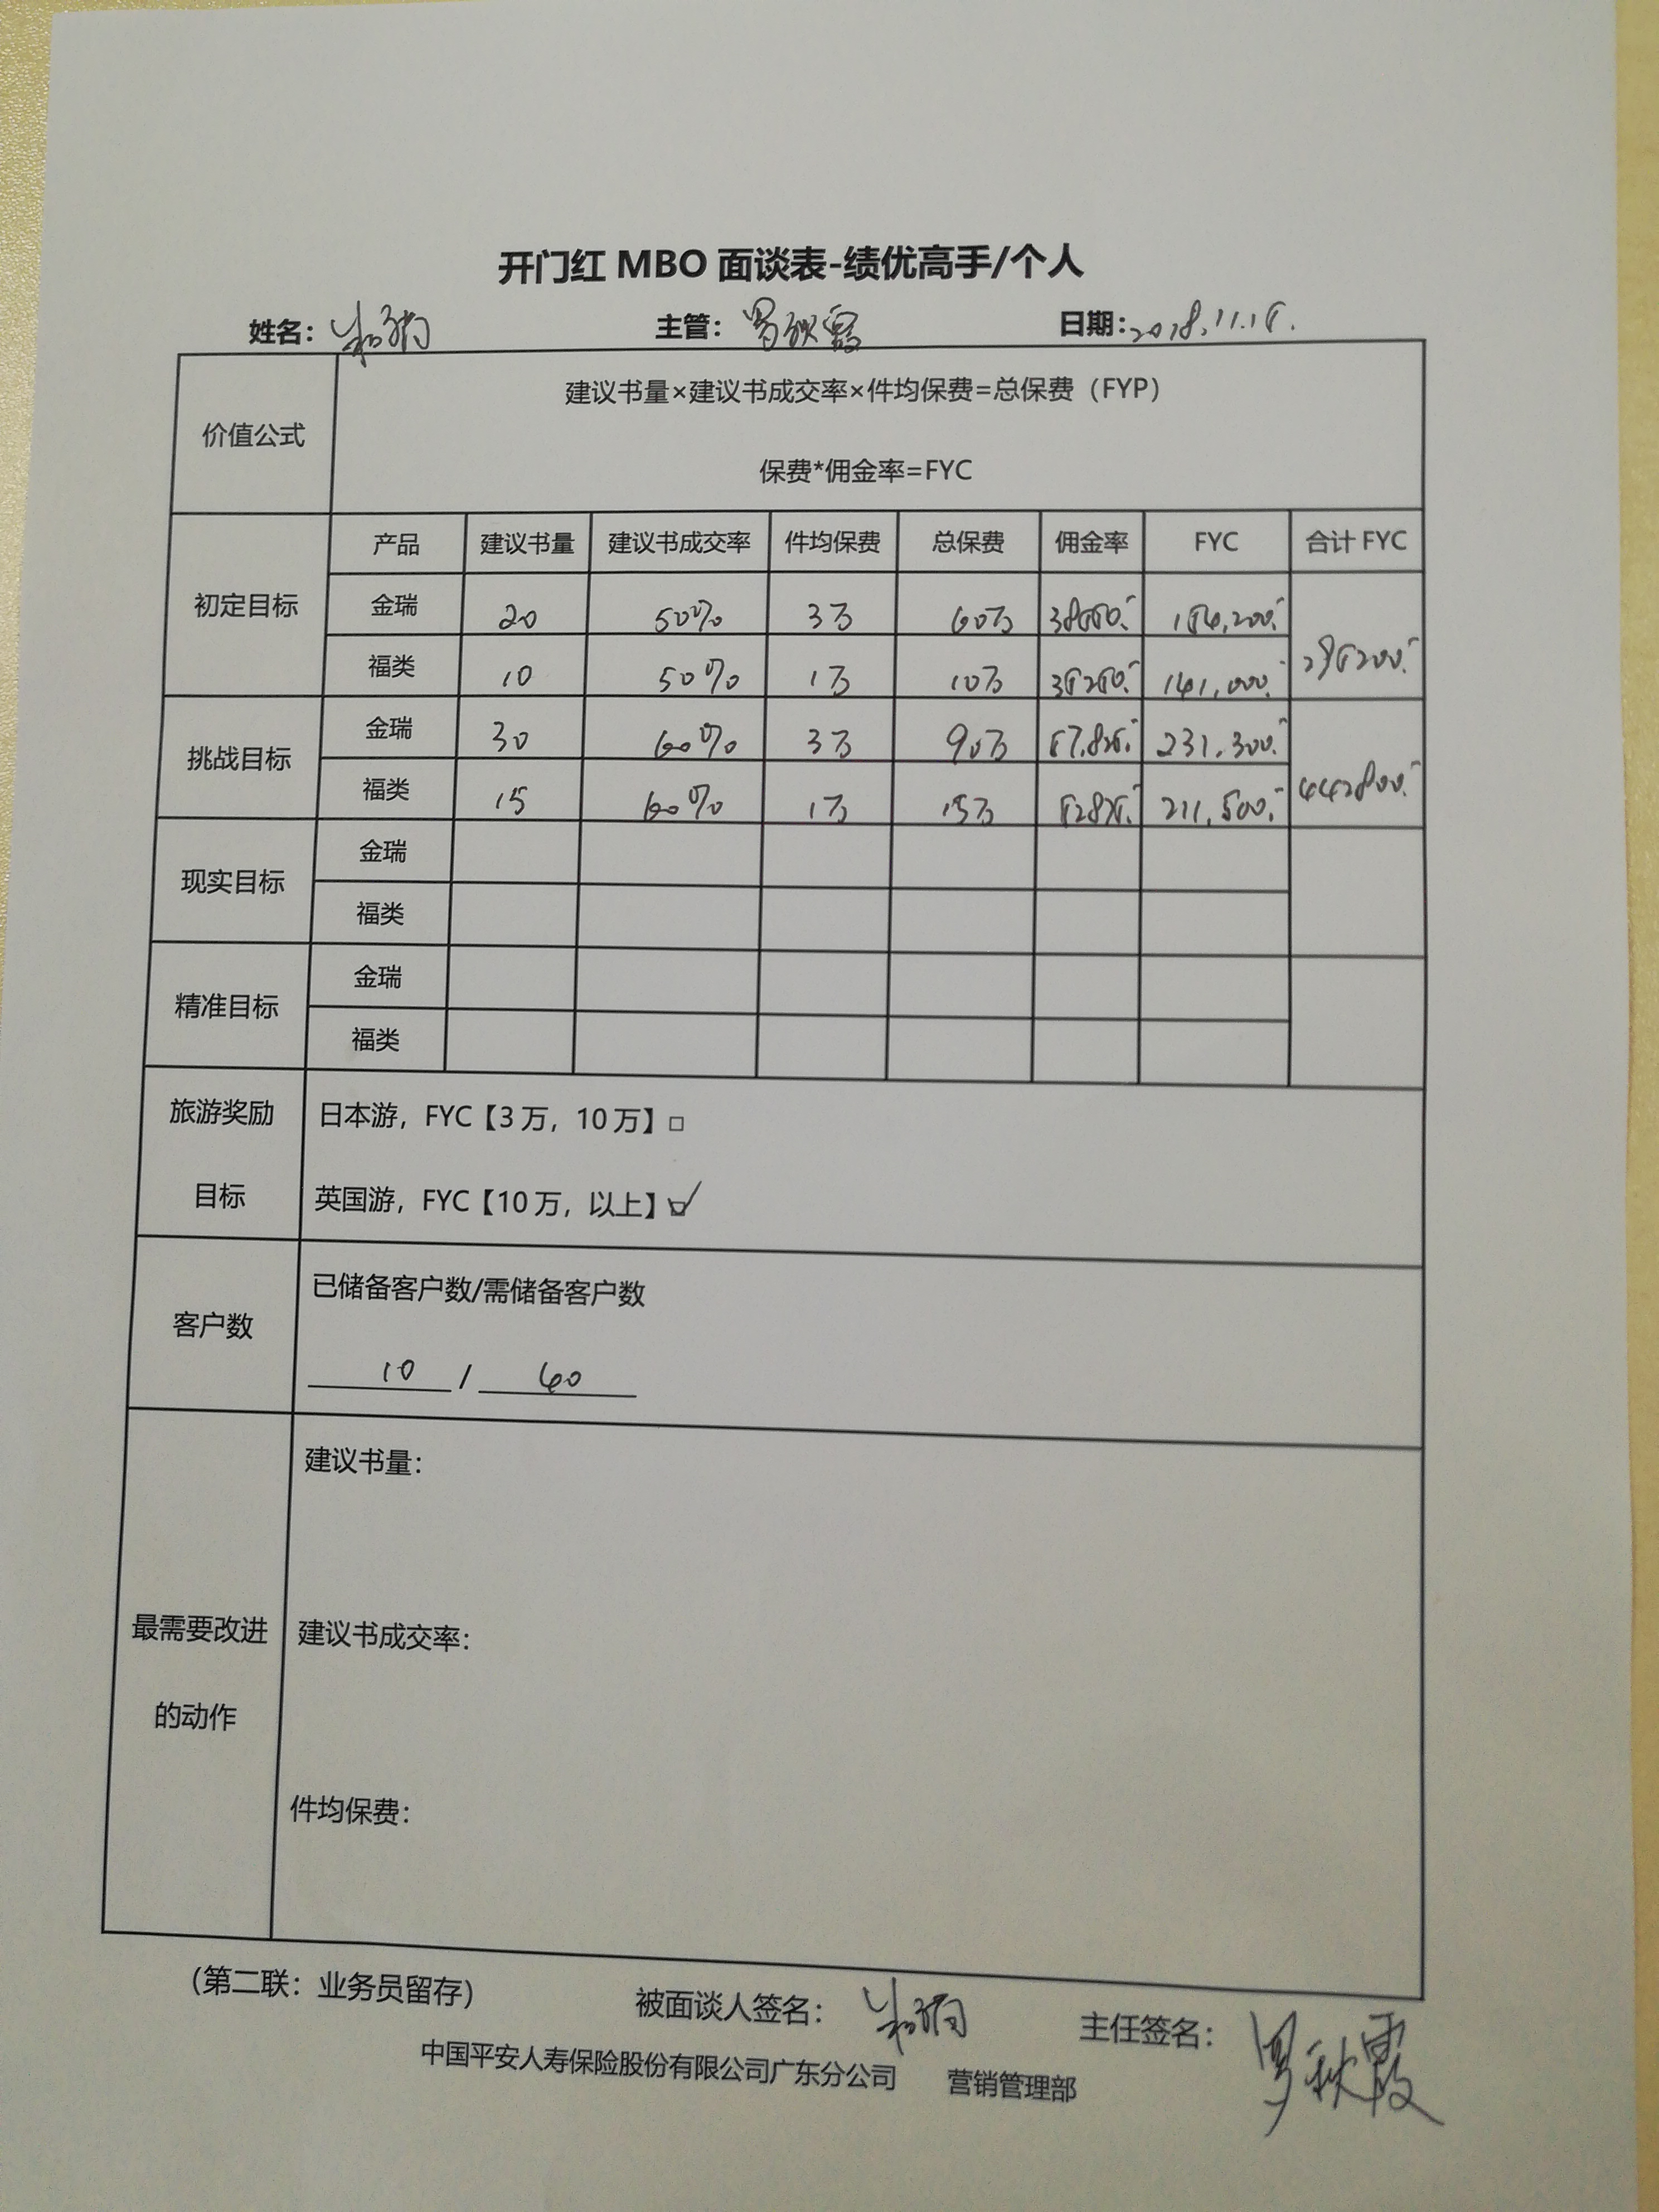 开门红 MBO 面谈表-绩优高手/个人
姓名: 主管: 罗秋霞 日期: 2018.11.15.
价值公式
建议书量×建议书成交率×件均保费=总保费（FYP）
保费*佣金率=FYC
产品 建议书量 建议书成交率 件均保费 总保费 佣金率 FYC 合计 FYC
初定目标
金瑞 20 50% 3万 60万 38550. 154,200.
福类 10 50% 1万 10万 35250. 141,000.
295200.
挑战目标
金瑞 30 60% 3万 90万 57.825. 231.300.
福类 15 60% 1万 15万 52875. 211,500.
442800.
现实目标
金瑞
福类
精准目标
金瑞
福类
旅游奖励
目标
日本游，FYC【3 万，10 万】□
英国游，FYC【10 万，以上】☑
客户数
已储备客户数/需储备客户数
10 / 60
最需要改进
的动作
建议书量：
建议书成交率：
件均保费：
（第二联：业务员留存） 被面谈人签名： 主任签名： 罗秋霞
中国平安人寿保险股份有限公司广东分公司 营销管理部